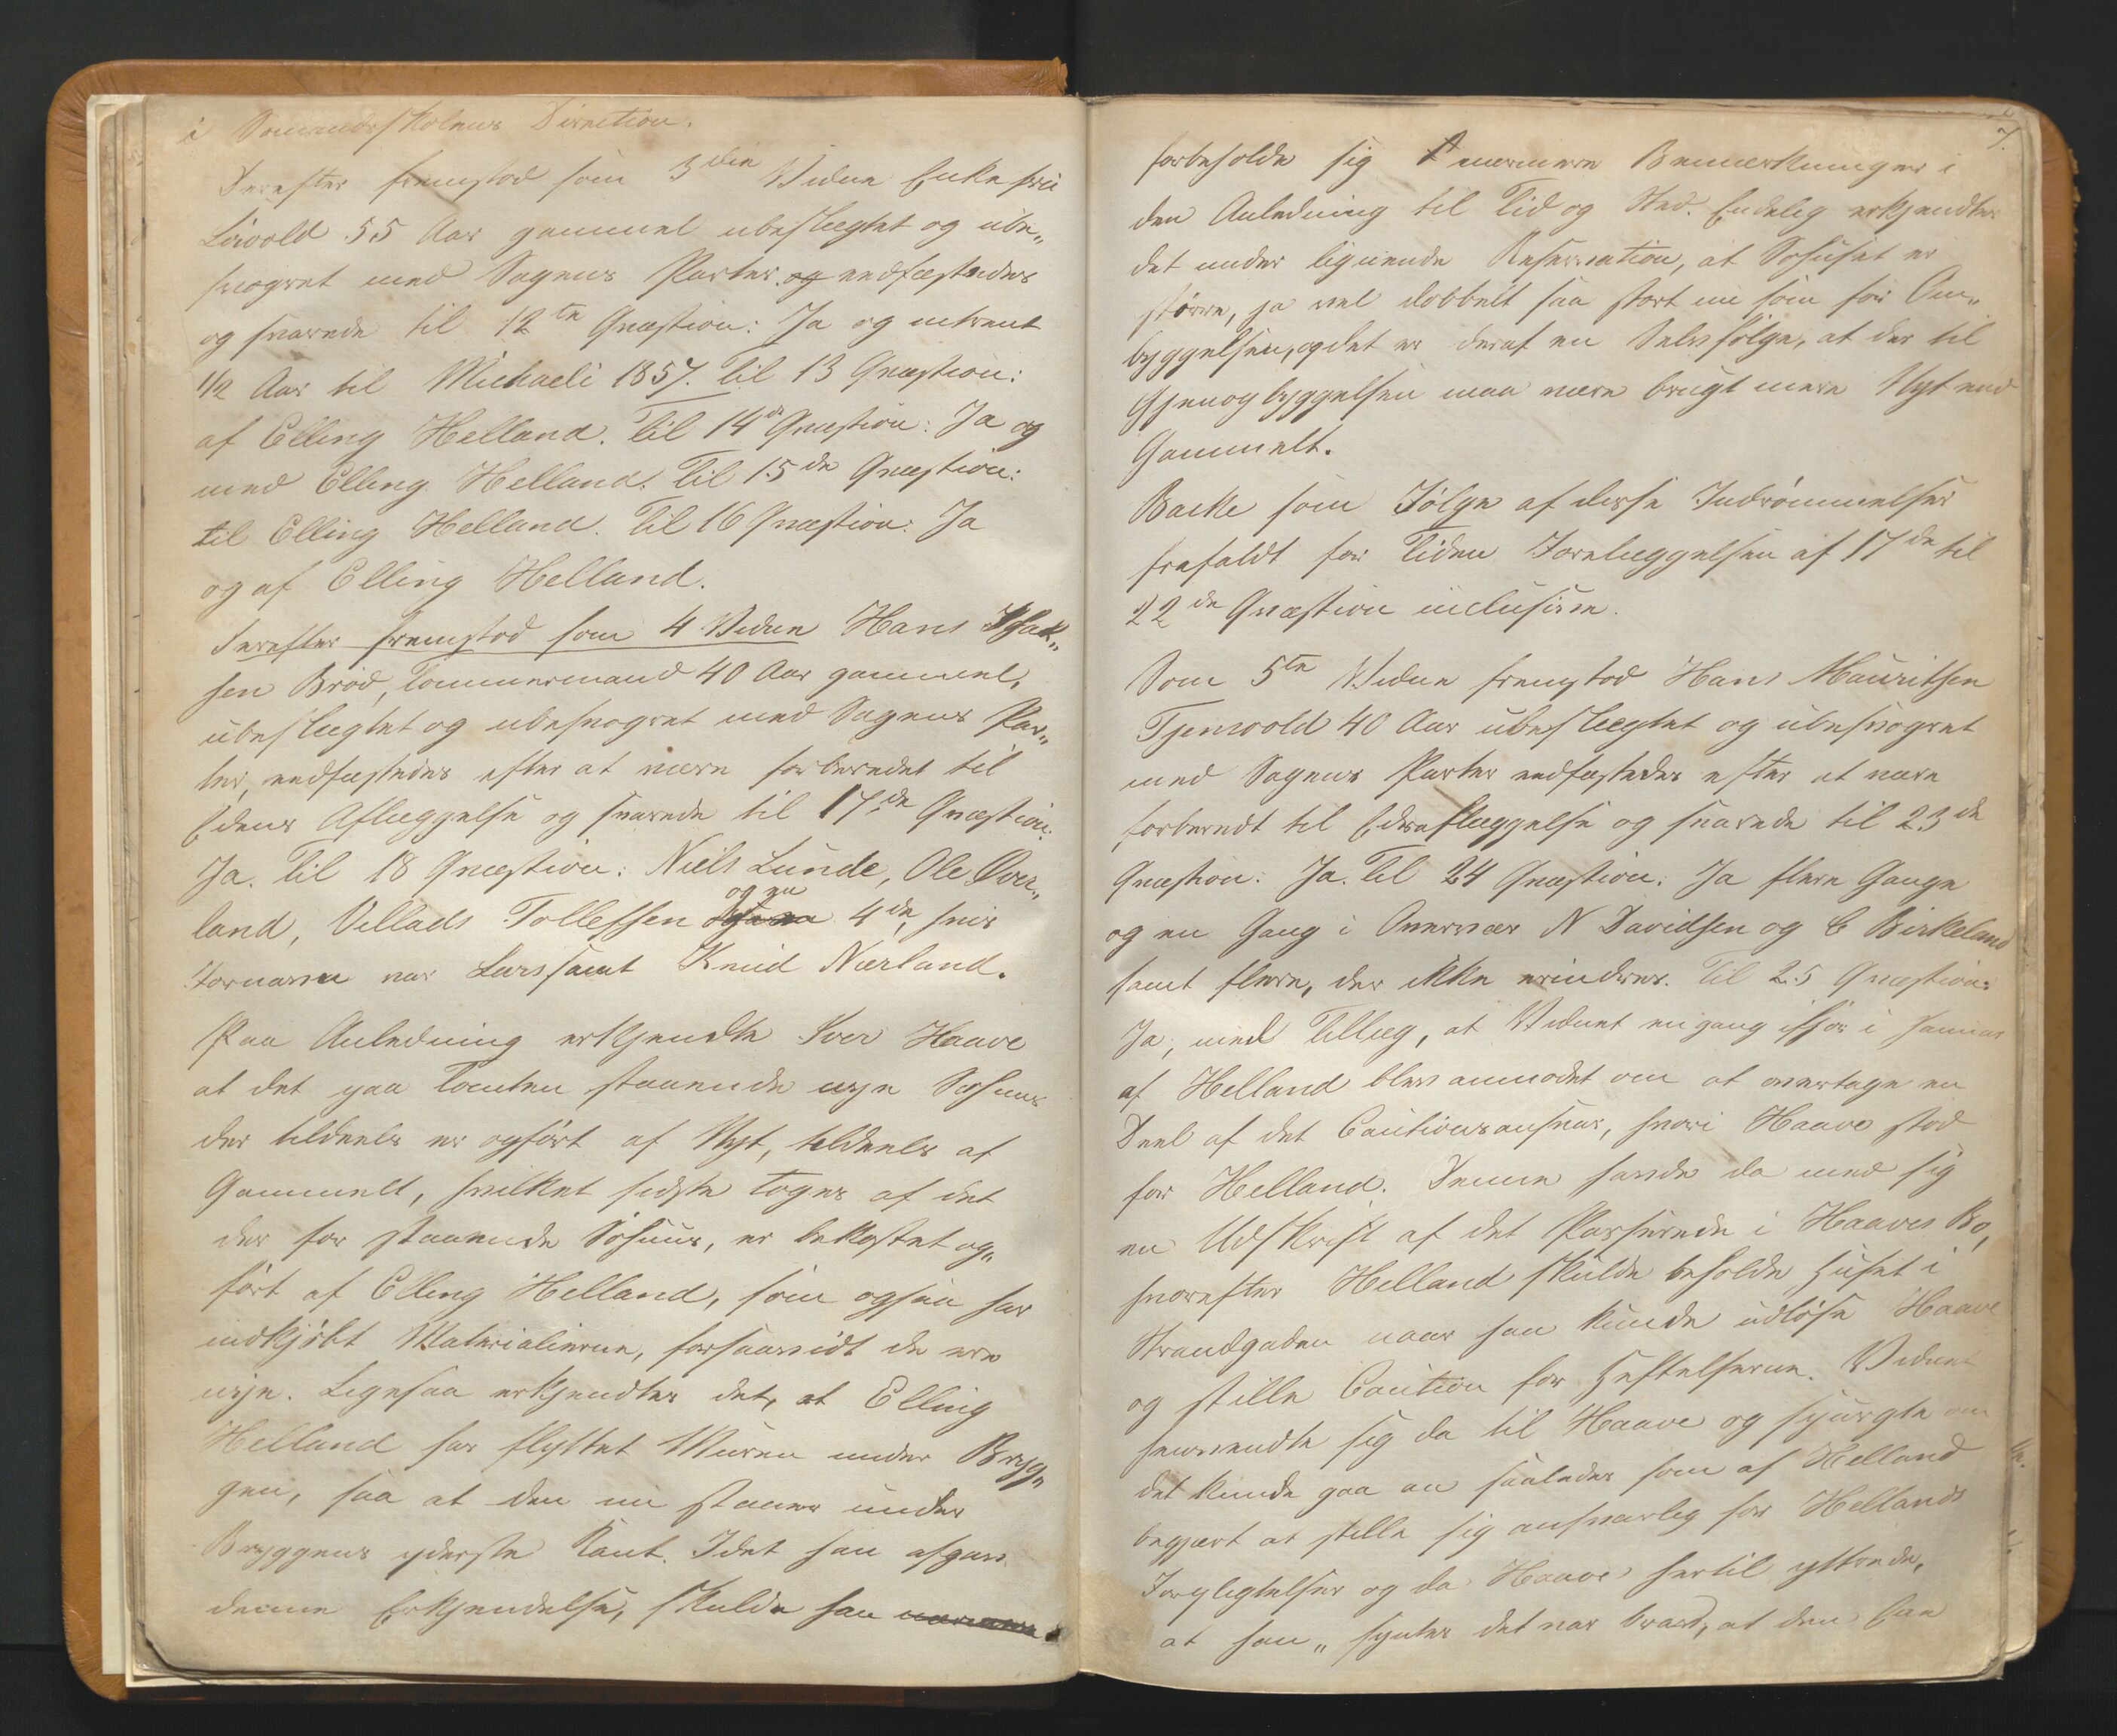 i Sømandsskolens Direction.
Derefter fremstod som 3die Vidne Enkefru
Livold 55 Aar gammel ubeslægtet og ube„
svogret med Sagens Parter og vedfæstedes
og svarede til 12te Qvæstion: Ja og omtrent
1/2 Aar til Michaeli 1857. Til 13 Qvæstion:
af Elling Helland. Til 14de Qvæstion: Ja og
med Elling Helland. Til 15de Qvæstion:
til Elling Helland. Til 16 Qvæstion: Ja
og af Elling Helland.
Derefter fremstod som 4 Vidne Hans Isak„
sen Brød, Tømmermand 40 Aar gammel,
ubeslægtet og ubesvogret med Sagens Par„
ter, vedfæstedes efter at være forberedet til
Edens Aflæggelse og svarede til 17de Qvæstion:
Ja. Til 18 Qvæstion: Niels Lunde, Ole Over„
land, Villads Tollefsen og en 4de, hvis
Fornavn var Lars samt Knud Nærland.
Paa Anledning erkjendte Iver Haave
at det paa Tomten staaende nye Søhuus
der tildeels er opført af Nyt, tildeels af
Gammelt, hvilket sidste toges af det
der før staaende Søhuus, er bekostet op„
ført af Elling Helland, som ogsaa har
indkjøbt Materialierne, forsaavidt de ere
nye. Ligesaa erkjendtes det, at Elling
Helland har flyttet Muren under Bryg„
gen, saa at den nu staaer under
Bryggens yderste Kant. Idet han afgav
denne Erkjendelse, skulde han nærmere
7.
forbeholde sig nærmere Bemærkninger i
den Anledning til Tid og Sted. Endelig erkjendtes
det under lignende Reservation, at Søhuset er
større, ja vel dobbelt saa stort nu som før Om„
byggelsen, og det er deraf en Selvfølge, at der til
Gjenopbyggelsen maa være brugt mere Nyt end
Gammelt.
Backe som Følge af disse Indrømmelser
frafaldt for Tiden Forelæggelsen af 17de til
22de Qvæstion inclusive.
Som 5te Vidne fremstod Hans Mauritsen
Tjensvold 40 Aar ubeslægtet og ubesvogret
med Sagens Parter vedfæstedes efter at være
forberedt til Edsaflæggelse og svarede til 23de
Qvæstion: Ja. Til 24 Qvæstion: Ja flere Gange
og en Gang i Overvær N Davidsen og C Birkeland
samt flere, der ikke erindres. Til 25 Qvæstion:
Ja, med Tillæg, at Vidnet engang ifjor i Januar
af Helland blev anmodet om at overtage en
Deel af det Cautionsansvar, hvori Haave stod
for Helland. Denne havde da med sig
en Udskrift af det Passerede i Haaves Bo,
hvorefter Helland skulde beholde Huset i
Strandgaden naar han kunde udløse Haave
og stille Caution for Heftelserne. Vidnet
henvendte sig da til Haave og spurgte om
det kunde gaa an saaledes som af Helland
begjært at stille sig ansvarlig for Hellands
Forpligtelser og da Haave hertil yttrede,
at han „syntes det var bravt, at den Ene